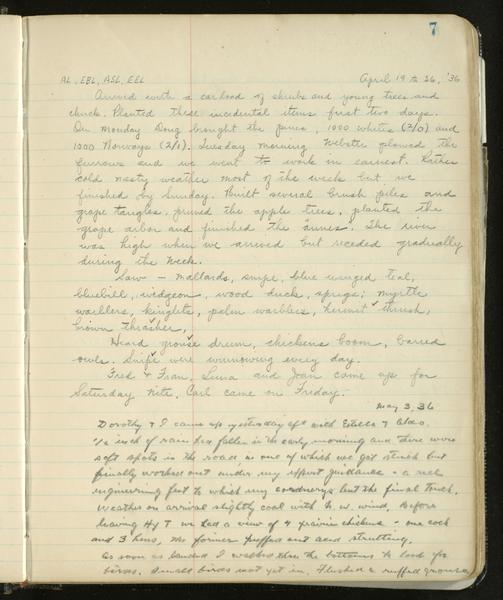 7
AL, EBL, ASL, EEL April 19 to 26, '36
Arrived with a carload of shrubs and young trees and
chuck. Planted these incidental items first two days.
On Monday Doug brought the pines, 1000 whites (2/0) and
1000 Norways (2/1). Tuesday morning Webster plowed the
furrows and we went to work in earnest. Rather
cold nasty weather most of the week but we
finished by Sunday. Built several brush piles and
grape tangles, pruned the apple trees, planted the
grape arbor and finished the annex. The river
was high when we arrived but receded gradually
during the week.
Saw - mallards, snipe, blue winged teal,
bluebill, widgeon, wood duck, sprigs; myrtle
warblers, kinglets, palm warblers, hermit thrush,
brown thrasher,
Heard grouse drum, chickens boom, barred
owls. Snipe were winnowing every day.
Fred & Fran, Luna and Joan came up for
Saturday nite. Carl came on Friday.
May 3, 36
Dorothy & I came up yesterday aft with Estella & Aldo.
inch of rain had fallen in the early morning and there were
soft spots in the road in one of which we got stuck but
finally worked out under my expert guidance - a real
engineering feat to which my lent the final touch.
Weather on arrival slightly cool with N.W. wind. Before
leaving Hy T we had a view of 4 prairie chickens - one cock
and 3 hens, the former puffed out and strutting.
As soon as landed I walked thru the bottoms to look for
birds. Small birds not yet in. Flushed a ruffed grouse